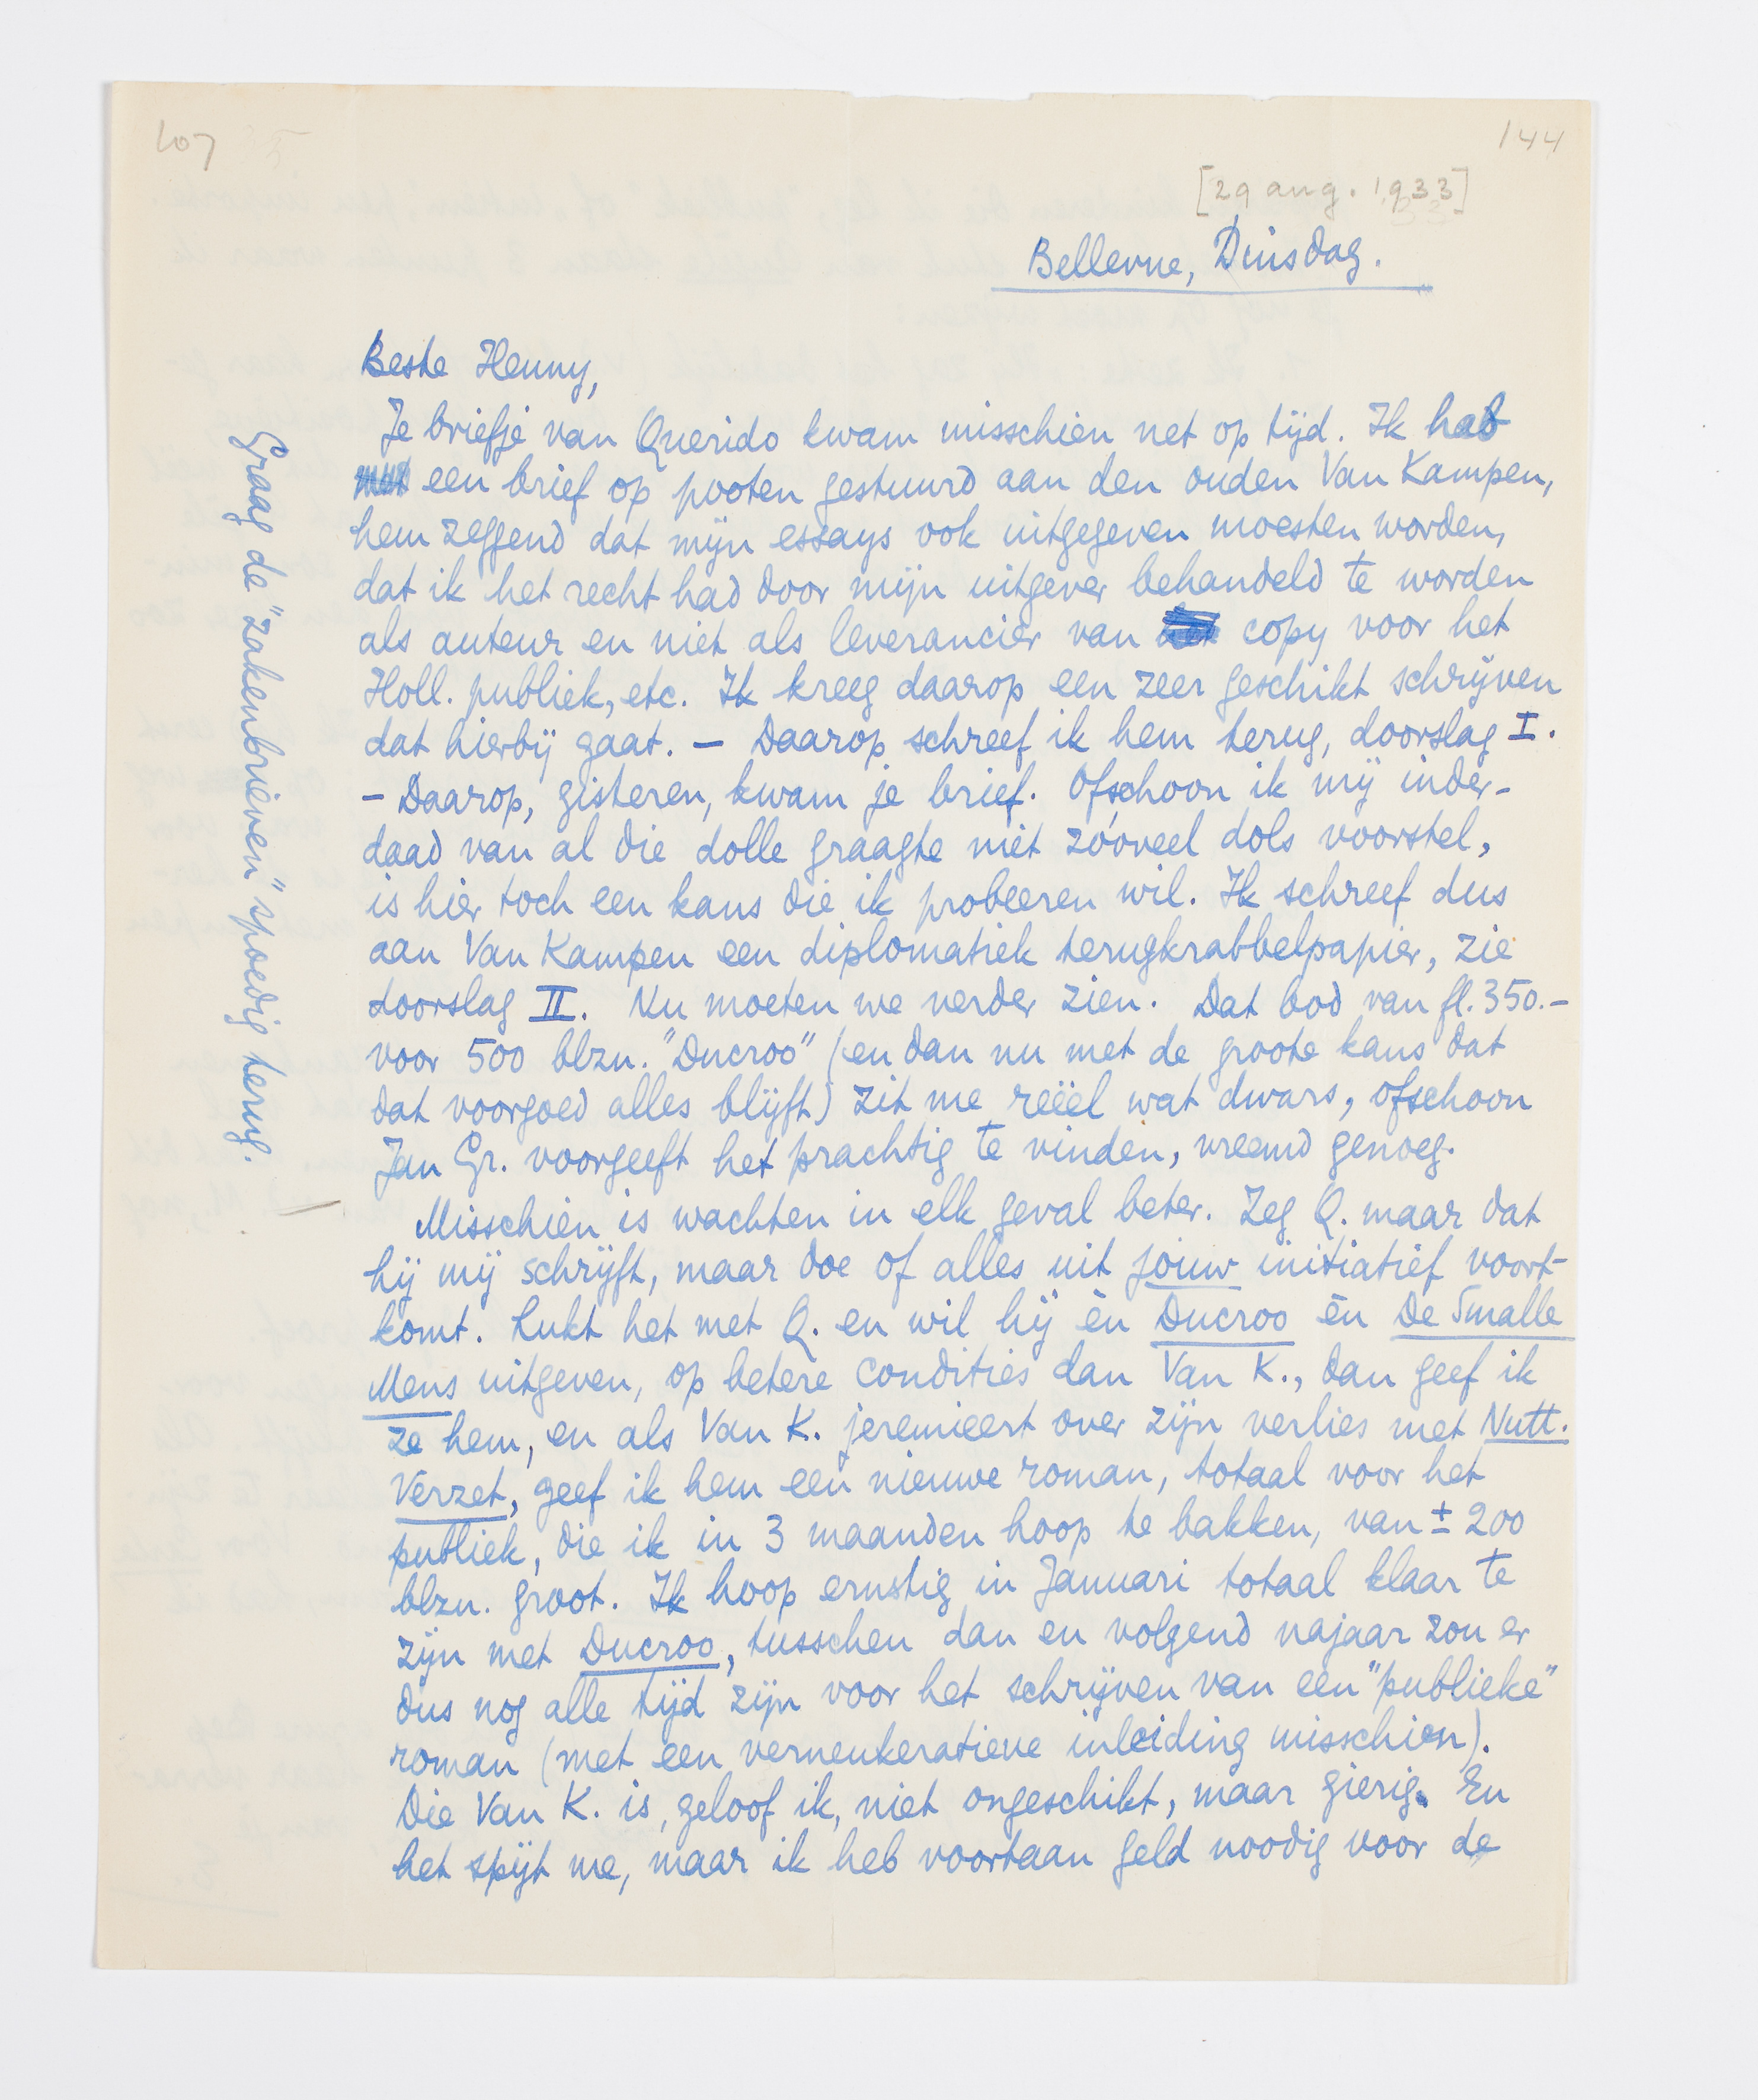 107
144
[29 aug. 1933]
Bellevue, Dinsdag.
Beste Henny,
Je briefje van Querido kwam misschien net op tijd. Ik had
een brief op pooten gestuurd aan den ouden Van Kampen,
hem zeggend dat mijn essays ook uitgegeven moesten worden,
dat ik het recht had door mijn uitgever behandeld te worden
als auteur en niet als leverancier van copy voor het
Holl. publiek, etc. Ik kreeg daarop een zeer geschikt schrijven
dat hierbij gaat. — Daarop schreef ik hem terug, doorslag I.
— Daarop, gisteren, kwam je brief. Ofschoon ik mij inder-
daad van al die dolle graagte niet zóóveel dols voorstel,
is hier toch een kans die ik probeeren wil. Ik schreef dus
aan Van Kampen een diplomatiek terugkrabbelpapier, zie
doorslag II. Nu moeten we verder zien. Dat bod van fl. 350.—
voor 500 blzn. "Ducroo" (en dan nu met de groote kans dat
dat voorgoed alles blijft) zit me reëel wat dwars, ofschoon
Jan Gr. voorgeeft het prachtig te vinden, vreemd genoeg.
Misschien is wachten in elk geval beter. Zeg Q. maar dat
hij mij schrijft, maar doe of alles uit jouw initiatief voort-
komt. Lukt het met Q. en wil hij èn Ducroo èn De Smalle
Mens uitgeven, op betere condities dan Van K., dan geef ik
ze hem, en als Van K. jeremieert over zijn verlies met Nutt.
Verzet, geef ik hem een nieuwe roman, totaal voor het
publiek, die ik in 3 maanden hoop te bakken, van ± 200
blzn. groot. Ik hoop ernstig in Januari totaal klaar te
zijn met Ducroo, tusschen dan en volgend najaar zou er
dus nog alle tijd zijn voor het schrijven van een "publieke"
roman (met een verneukeratieve inleiding misschien).
Die Van K. is, geloof ik, niet ongeschikt, maar gierig. En
het spijt me, maar ik heb voortaan geld noodig voor de
Graag de "zakenbrieven" spoedig terug.